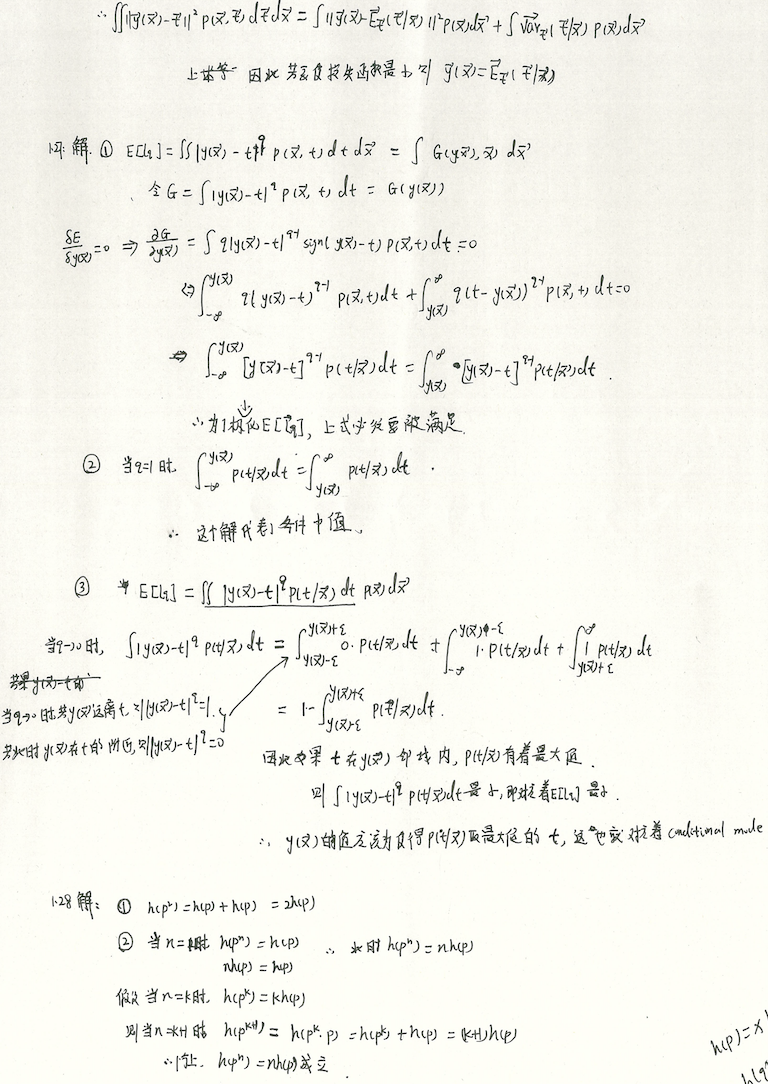 ∴ ∬||y⃗(x⃗)-t⃗||² p(x⃗,t⃗) dt⃗dx⃗ = ∫||y⃗(x⃗)-E⃗t⃗(t⃗/x⃗)||²p(x⃗)dx⃗ + ∫Var⃗t⃗(t⃗/x⃗) p(x⃗)dx⃗
因此 若要使损失函数最小 则 y⃗(x⃗)=E⃗t⃗(t⃗/x⃗)
1.27: 解. ① E[Lq] = ∬|y(x⃗)-t|^q p(x⃗,t) dt dx⃗ = ∫ G(y(x⃗),x⃗) dx⃗
令 G = ∫|y(x⃗)-t|^q p(x⃗,t) dt = G(y(x⃗))
δE/δy(x⃗)=0 ⇒ ∂G/∂y(x⃗) = ∫ q|y(x⃗)-t|^{q-1} sign(y(x⃗)-t) p(x⃗,t) dt = 0
⇔ ∫_{-∞}^{y(x⃗)} q(y(x⃗)-t)^{q-1} p(x⃗,t)dt + ∫_{y(x⃗)}^{∞} q(t-y(x⃗))^{q-1} p(x⃗,t) dt=0
⇔ ∫_{-∞}^{y(x⃗)} [y(x⃗)-t]^{q-1} p(t/x⃗)dt = ∫_{y(x⃗)}^{∞} [y(x⃗)-t]^{q-1} p(t/x⃗)dt.
∴ 为了极小化E[Lq], 上式必须要被满足.
② 当q=1时. ∫_{-∞}^{y(x⃗)} p(t/x⃗)dt = ∫_{y(x⃗)}^{∞} p(t/x⃗)dt.
∴ 这个解代表了条件中值.
③ E[Lq] = ∬ |y(x⃗)-t|^q p(t/x⃗) dt p(x⃗)dx⃗
当q→0时, ∫|y(x⃗)-t|^q p(t/x⃗)dt = ∫_{y(x⃗)-ε}^{y(x⃗)+ε} 0·p(t/x⃗)dt + ∫_{-∞}^{y(x⃗)-ε} 1·p(t/x⃗)dt + ∫_{y(x⃗)+ε}^{∞} 1 p(t/x⃗)dt
当q→0时 若y(x⃗)远离t, 则|y(x⃗)-t|^q=1.
= 1-∫_{y(x⃗)-ε}^{y(x⃗)+ε} p(t/x⃗)dt.
若此时y(x⃗)在t的附近, 则|y(x⃗)-t|^q=0
因此如果 t 在y(x⃗)邻域内, p(t/x⃗)有着最大值.
则 ∫|y(x⃗)-t|^q p(t/x⃗)dt最小, 即对应着E[Lq]最小.
∴ y(x⃗)的值应该为使得p(t/x⃗)取最大值的t, 这也就对应着 conditional mode
1.28 解: ① h(p²)=h(p)+h(p) = 2h(p)
② 当n=1时 h(pⁿ)=h(p) ∴ 此时h(pⁿ)=nh(p)
nh(p)=h(p)
假设当n=k时. h(p^k)=kh(p)
则当n=k+1时 h(p^{k+1})= h(p^k·p)=h(p^k)+h(p)=(k+1)h(p)
∴ h(pⁿ)=nh(p)成立.
h(p)=x